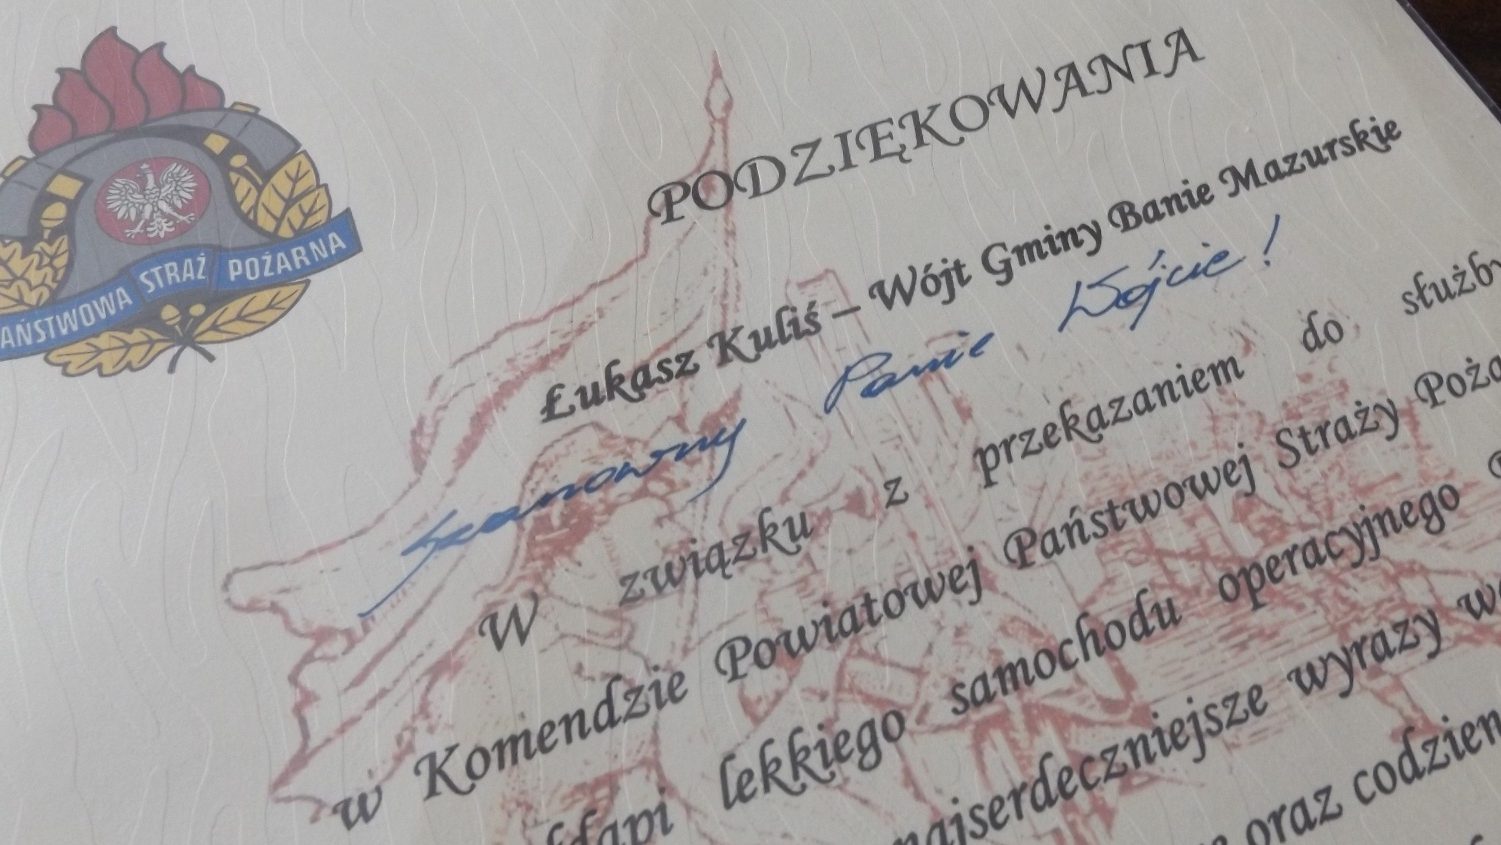 PAŃSTWOWA STRAŻ POŻARNA
PODZIĘKOWANIA
Łukasz Kuliś – Wójt Gminy Banie Mazurskie
Szanowny Panie Wójcie!
W związku z przekazaniem do służby
w Komendzie Powiatowej Państwowej Straży
lekkiego samochodu operacyjnego
najserdeczniejsze wyrazy
oraz